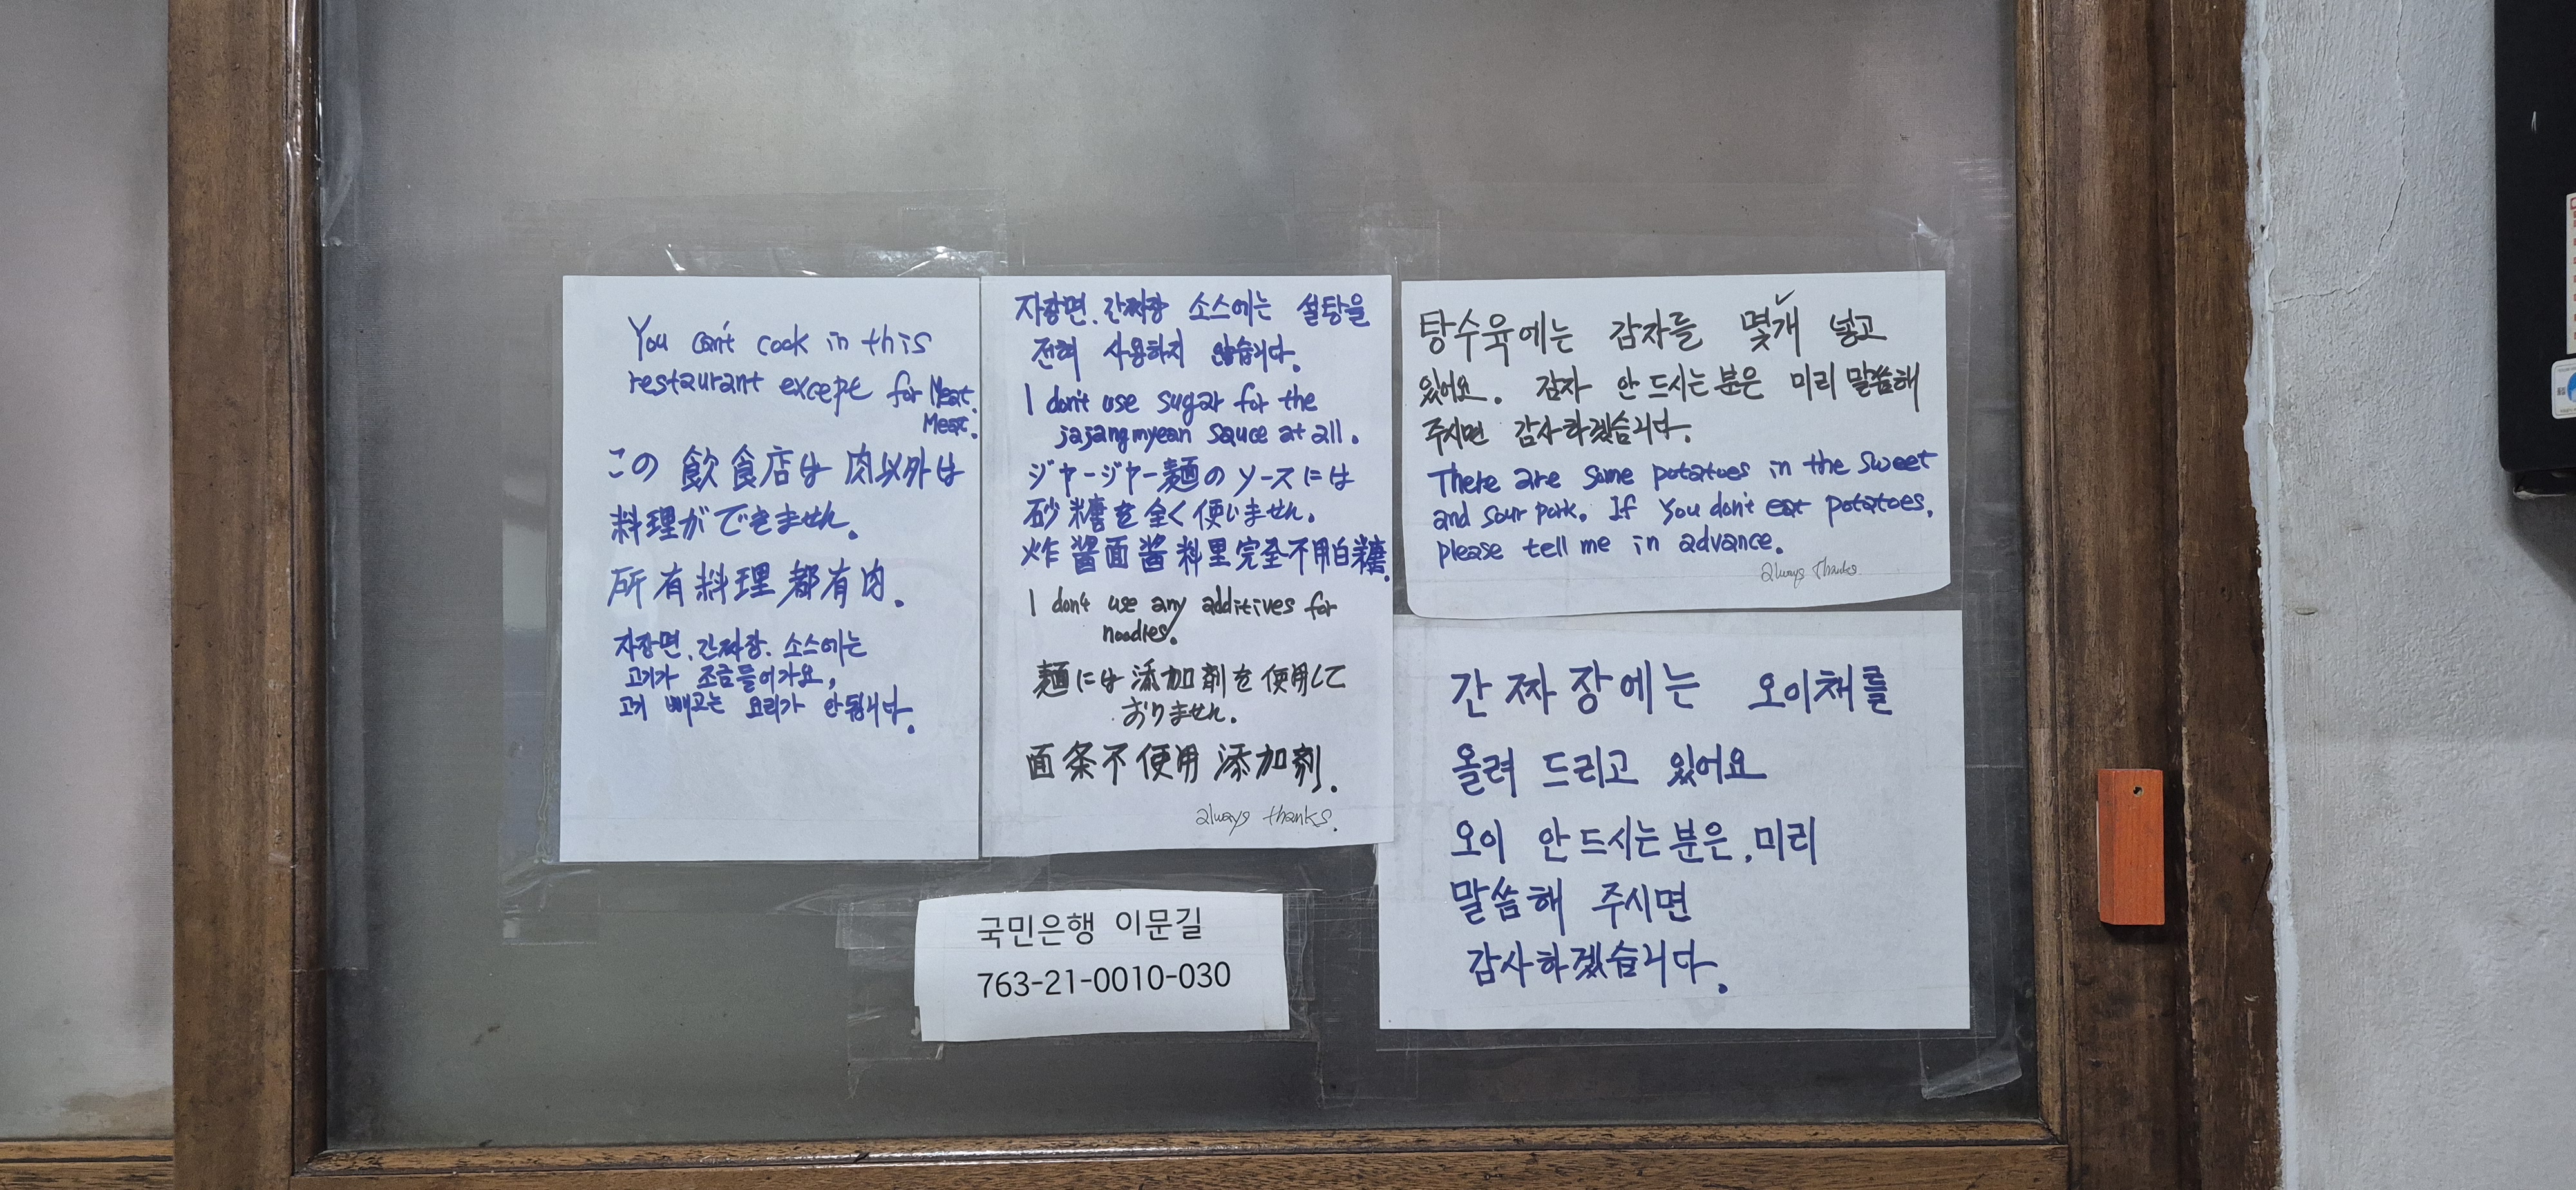 You can't cook in this
restaurant except for Meat.
Meat.
この 飲食店は 肉以外は
料理ができません。
所有料理都有肉.
자장면.간짜장. 소스에는
고기가 조금들어가요,
고기 빼고는 요리가 안됩니다.
자장면.간짜장 소스에는 설탕을
전혀 사용하지 않습니다.
I don't use sugar for the
jajangmyean sauce at all.
ジャージャー麺のソースには
砂糖を全く使いません.
炸醤面酱料里完全不用白糖.
I don't use any additives for
noodles.
麺には添加剤を使用して
おりません.
面条不使用添加剂.
always thanks.
탕수육에는 감자를 몇개 넣고
있어요. 감자 안드시는분은 미리말씀해
주시면 감사하겠습니다.
There are some potatoes in the sweet
and sour pork. If you don't eat potatoes.
please tell me in advance.
always thanks
간짜장에는 오이채를
올려 드리고 있어요
오이 안드시는분은.미리
말씀해 주시면
감사하겠습니다.
국민은행 이문길
763-21-0010-030